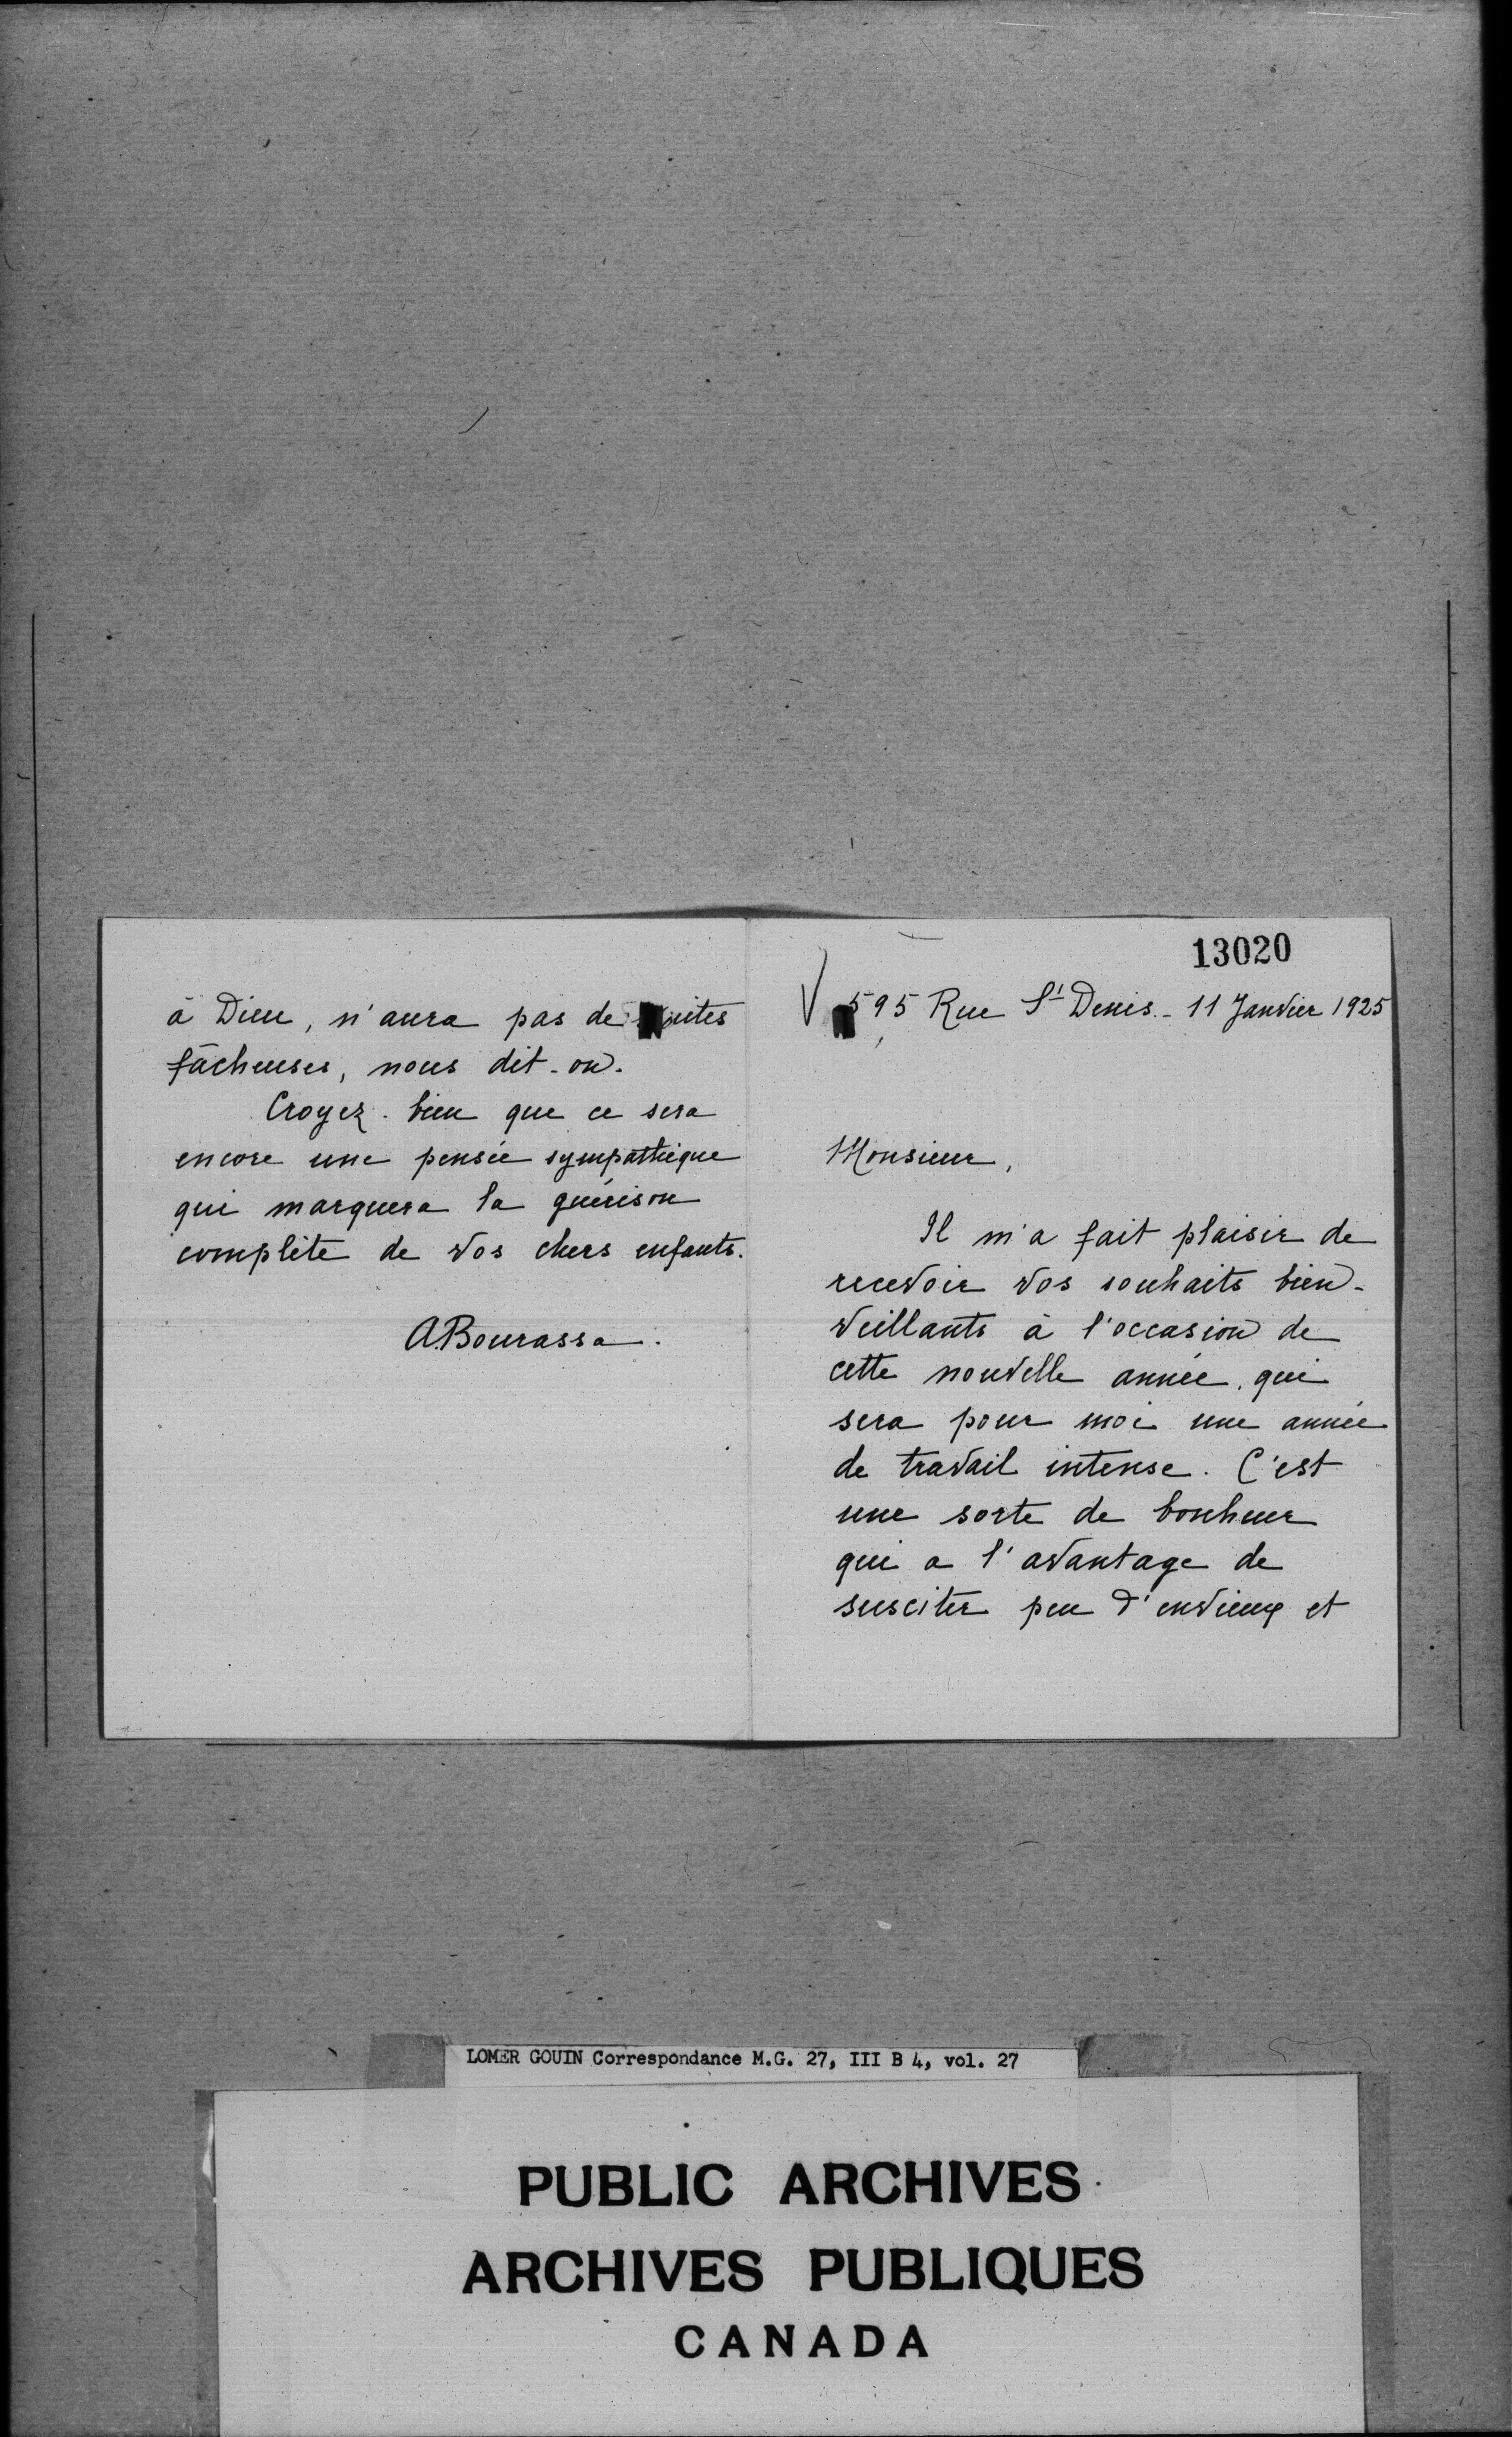 13020
595 Rue St Denis - 11 Janvier 1925
Monsieur,
Il m'a fait plaisir de
recevoir vos souhaits bien-
veillants à l'occasion de
cette nouvelle année, qui
sera pour moi une année
de travail intense. C'est
une sorte de bonheur
qui a l'avantage de
susciter peu d'envieux et
à Dieu, n'aura pas de suites
fâcheuses, nous dit-on.
Croyez-bien que ce sera
encore une pensée sympathique
qui marquera la guérison
complète de vos chers enfants.
A.Bourassa.
LOMER GOUIN Correspondance M.G. 27, III B 4, vol. 27
PUBLIC ARCHIVES
ARCHIVES PUBLIQUES
CANADA